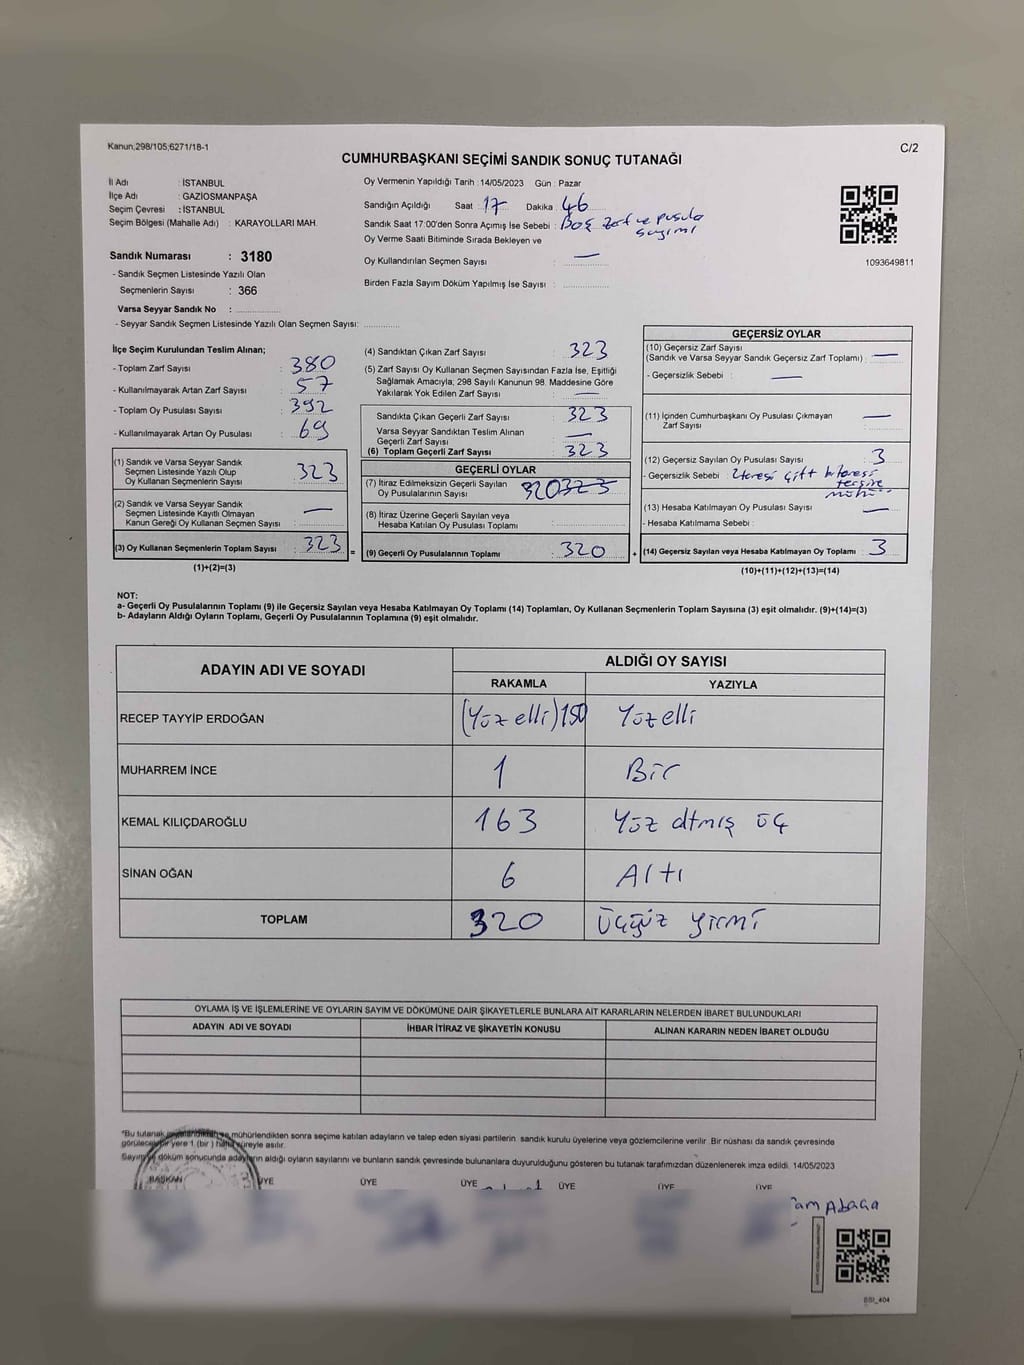 Kanun,298/105;6271/18-1
C/2
CUMHURBAŞKANI SEÇİMİ SANDIK SONUÇ TUTANAĞI
İl Adı : İSTANBUL
İlçe Adı : GAZİOSMANPAŞA
Seçim Çevresi : İSTANBUL
Seçim Bölgesi (Mahalle Adı) : KARAYOLLARI MAH.
Oy Vermenin Yapıldığı Tarih : 14/05/2023 Gün : Pazar
Sandığın Açıldığı Saat : 17 Dakika : 46
Sandık Saat 17:00'den Sonra Açımış İse Sebebi : Boş zarf ve pusula
sayımı
Oy Verme Saati Bitiminde Sırada Bekleyen ve
Oy Kullandırılan Seçmen Sayısı : —
Birden Fazla Sayım Döküm Yapılmış İse Sayısı :
1093649811
Sandık Numarası : 3180
- Sandık Seçmen Listesinde Yazılı Olan
Seçmenlerin Sayısı : 366
Varsa Seyyar Sandık No :
- Seyyar Sandık Seçmen Listesinde Yazılı Olan Seçmen Sayısı:
İlçe Seçim Kurulundan Teslim Alınan;
- Toplam Zarf Sayısı : 380
- Kullanılmayarak Artan Zarf Sayısı : 57
- Toplam Oy Pusulası Sayısı : 392
- Kullanılmayarak Artan Oy Pusulası : 69
(1) Sandık ve Varsa Seyyar Sandık
Seçmen Listesinde Yazılı Olup
Oy Kullanan Seçmenlerin Sayısı : 323
(2) Sandık ve Varsa Seyyar Sandık
Seçmen Listesinde Kayıtlı Olmayan
Kanun Gereği Oy Kullanan Seçmen Sayısı : —
(3) Oy Kullanan Seçmenlerin Toplam Sayısı : 323 =
(1)+(2)=(3)
(4) Sandıktan Çıkan Zarf Sayısı : 323
(5) Zarf Sayısı Oy Kullanan Seçmen Sayısından Fazla İse, Eşitliği
Sağlamak Amacıyla; 298 Sayılı Kanunun 98. Maddesine Göre
Yakılarak Yok Edilen Zarf Sayısı : —
Sandıkta Çıkan Geçerli Zarf Sayısı : 323
Varsa Seyyar Sandıktan Teslim Alınan
Geçerli Zarf Sayısı : —
(6) Toplam Geçerli Zarf Sayısı : 323
GEÇERLİ OYLAR
(7) İtiraz Edilmeksizin Geçerli Sayılan
Oy Pusulalarının Sayısı 320 323
(8) İtiraz Üzerine Geçerli Sayılan veya
Hesaba Katılan Oy Pusulası Toplamı :
(9) Geçerli Oy Pusulalarının Toplamı : 320 +
GEÇERSİZ OYLAR
(10) Geçersiz Zarf Sayısı
(Sandık ve Varsa Seyyar Sandık Geçersiz Zarf Toplamı) : —
- Geçersizlik Sebebi : —
(11) İçinden Cumhurbaşkanı Oy Pusulası Çıkmayan
Zarf Sayısı : —
(12) Geçersiz Sayılan Oy Pusulası Sayısı : 3
- Geçersizlik Sebebi : çift
(13) Hesaba Katılmayan Oy Pusulası Sayısı : —
- Hesaba Katılmama Sebebi :
(14) Geçersiz Sayılan veya Hesaba Katılmayan Oy Toplamı : 3
(10)+(11)+(12)+(13)=(14)
NOT:
a- Geçerli Oy Pusulalarının Toplamı (9) ile Geçersiz Sayılan veya Hesaba Katılmayan Oy Toplamı (14) Toplamları, Oy Kullanan Seçmenlerin Toplam Sayısına (3) eşit olmalıdır. (9)+(14)=(3)
b- Adayların Aldığı Oyların Toplamı, Geçerli Oy Pusulalarının Toplamına (9) eşit olmalıdır.
ADAYIN ADI VE SOYADI ALDIĞI OY SAYISI
RAKAMLA YAZIYLA
RECEP TAYYİP ERDOĞAN (Yüz elli) 150 Yüz elli
MUHARREM İNCE 1 Bir
KEMAL KILIÇDAROĞLU 163 Yüz atmış üç
SİNAN OĞAN 6 Altı
TOPLAM 320 Üçyüz yirmi
OYLAMA İŞ VE İŞLEMLERİNE VE OYLARIN SAYIM VE DÖKÜMÜNE DAİR ŞİKAYETLERLE BUNLARA AİT KARARLARIN NELERDEN İBARET BULUNDUKLARI
ADAYIN ADI VE SOYADI İHBAR İTİRAZ VE ŞİKAYETİN KONUSU ALINAN KARARIN NEDEN İBARET OLDUĞU
*Bu tutanak mühürlendikten sonra seçime katılan adayların ve talep eden siyasi partilerin sandık kurulu üyelerine veya gözlemcilerine verilir. Bir nüshası da sandık çevresinde
görülecek bir yere 1 (bir) hafta süreyle asılır.
Sayım ve döküm sonucunda adayların aldığı oyların sayılarını ve bunların sandık çevresinde bulunanlara duyurulduğunu gösteren bu tutanak tarafımızdan düzenlenerek imza edildi. 14/05/2023
BAŞKAN ÜYE ÜYE ÜYE ÜYE ÜYE ÜYE